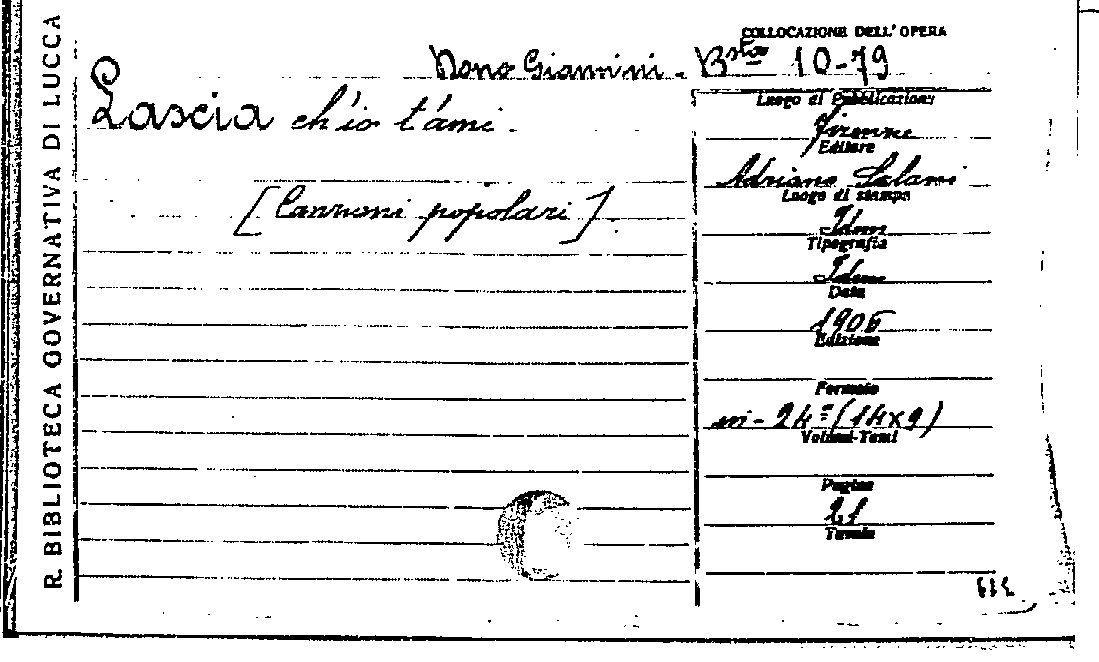 R. BIBLIOTECA GOVERNATIVA DI LUCCA
COLLOCAZIONE DELL'OPERA
Dono Giannini - Bsta 10-79
Lascia ch'io t'ami.
[Canzoni popolari].
Luogo di Pubblicazione
Firenze
Editore
Adriano Salani
Luogo di stampa
Idem
Tipografia
Idem
Data
1905
Edizione
Formato
in-24º (14x9)
Volumi-Tomi
Pagine
Tavole